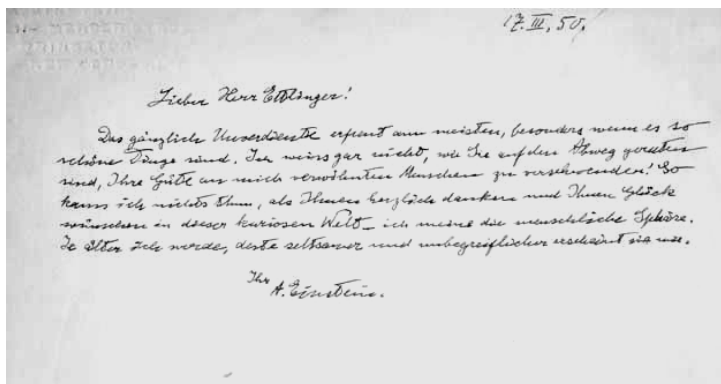 17.III.50.
Lieber Herr Ettlinger!
Das gänzlich Unverdiente erfreut am meisten, besonders wenn es so
schöne Dinge sind. Ich weiss gar nicht, wie Sie auf den Abweg geraten
sind, Ihre Güte an mich verwöhnten Menschen zu verschwenden! So
kann ich nichts thun, als Ihnen herzlich danken und Ihnen Glück
wünschen in dieser kuriosen Welt - ich meine die menschliche Sphäre.
Je älter ich werde, desto seltsamer und unbegreiflicher erscheint sie mir.
Ihr
A. Einstein.